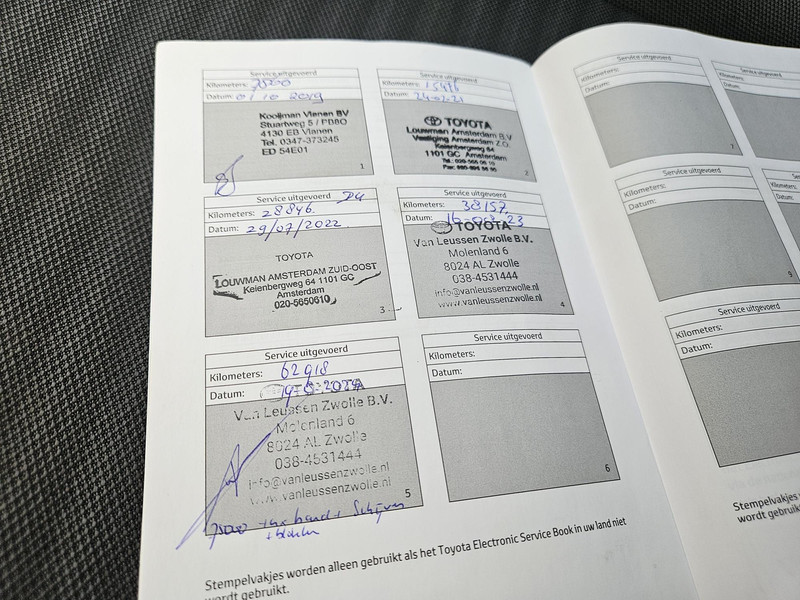 Service uitgevoerd
Kilometers:
Datum: 01 10 2019
Kooijman Vianen BV
Stuartweg 5 / PB80
4130 EB Vianen
Tel. 0347-373245
ED 54E01
1
Service uitgevoerd
Kilometers:
Datum:
TOYOTA
Louwman Amsterdam B.V
Vestiging Amsterdam Z.O.
Keienbergweg 64
1101 GC Amsterdam
2
Service uitgevoerd
Kilometers: 28846.
Datum: 29/07/2022.
TOYOTA
LOUWMAN AMSTERDAM ZUID-OOST
Keienbergweg 64 1101 GC
Amsterdam
020-5650610
3
Service uitgevoerd
Kilometers: 38157
Datum:
TOYOTA
Van Leussen Zwolle B.V.
Molenland 6
8024 AL Zwolle
038-4531444
info@vanleussenzwolle.nl
www.vanleussenzwolle.nl
4
Service uitgevoerd
Kilometers: 62918
Datum:
Van Leussen Zwolle B.V.
Molenland 6
8024 AL Zwolle
038-4531444
info@vanleussenzwolle.nl
www.vanleussenzwolle.nl
5
Service uitgevoerd
Kilometers:
Datum:
6
Stempelvakjes worden alleen gebruikt als het Toyota Electronic Service Book in uw land niet
wordt gebruikt.
Service uitgevoerd
Kilometers:
Datum:
7
Service uitgevoerd
Kilometers:
Datum:
Service uitgevoerd
Kilometers:
Datum:
9
Kilometers:
Datum:
Service uitgevoerd
Kilometers:
Datum:
Stempelvakjes
wordt gebruik